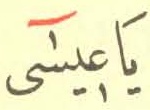 يَا عِيسَىٰ